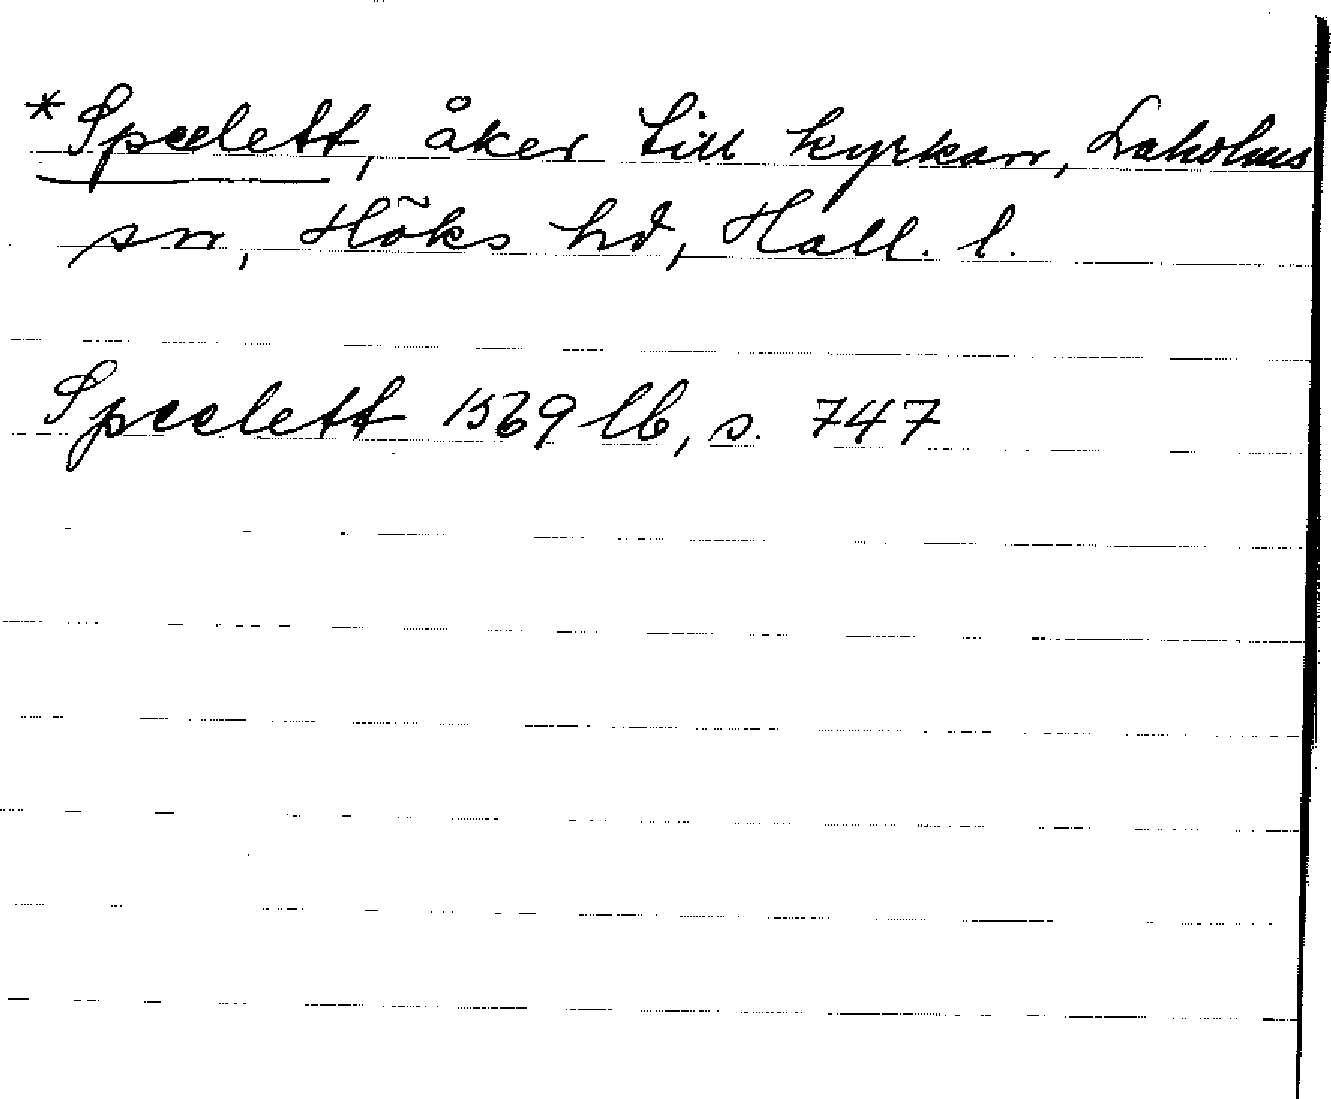 *Spælett, åker till kyrkan, Laholms
sn, Höks hd, Hall. l.
Spælett 1569 lb, s. 747